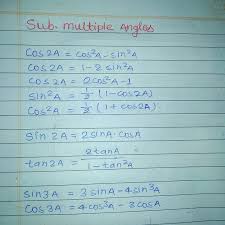 Sub. multiple Angles
Cos2A = cos²A - sin²A
Cos2A = 1 - 2 sin²A
Cos2A = 2cos²A - 1
Sin²A = 1/2 (1 - cos2A)
Cos²A = 1/2 (1 + cos2A)
Sin 2A = 2 sinA. cosA
tan2A = 2tanA / 1 - tan²A
Sin3A = 3 sinA - 4 sin³A
Cos3A = 4 cos³A - 3 cosA